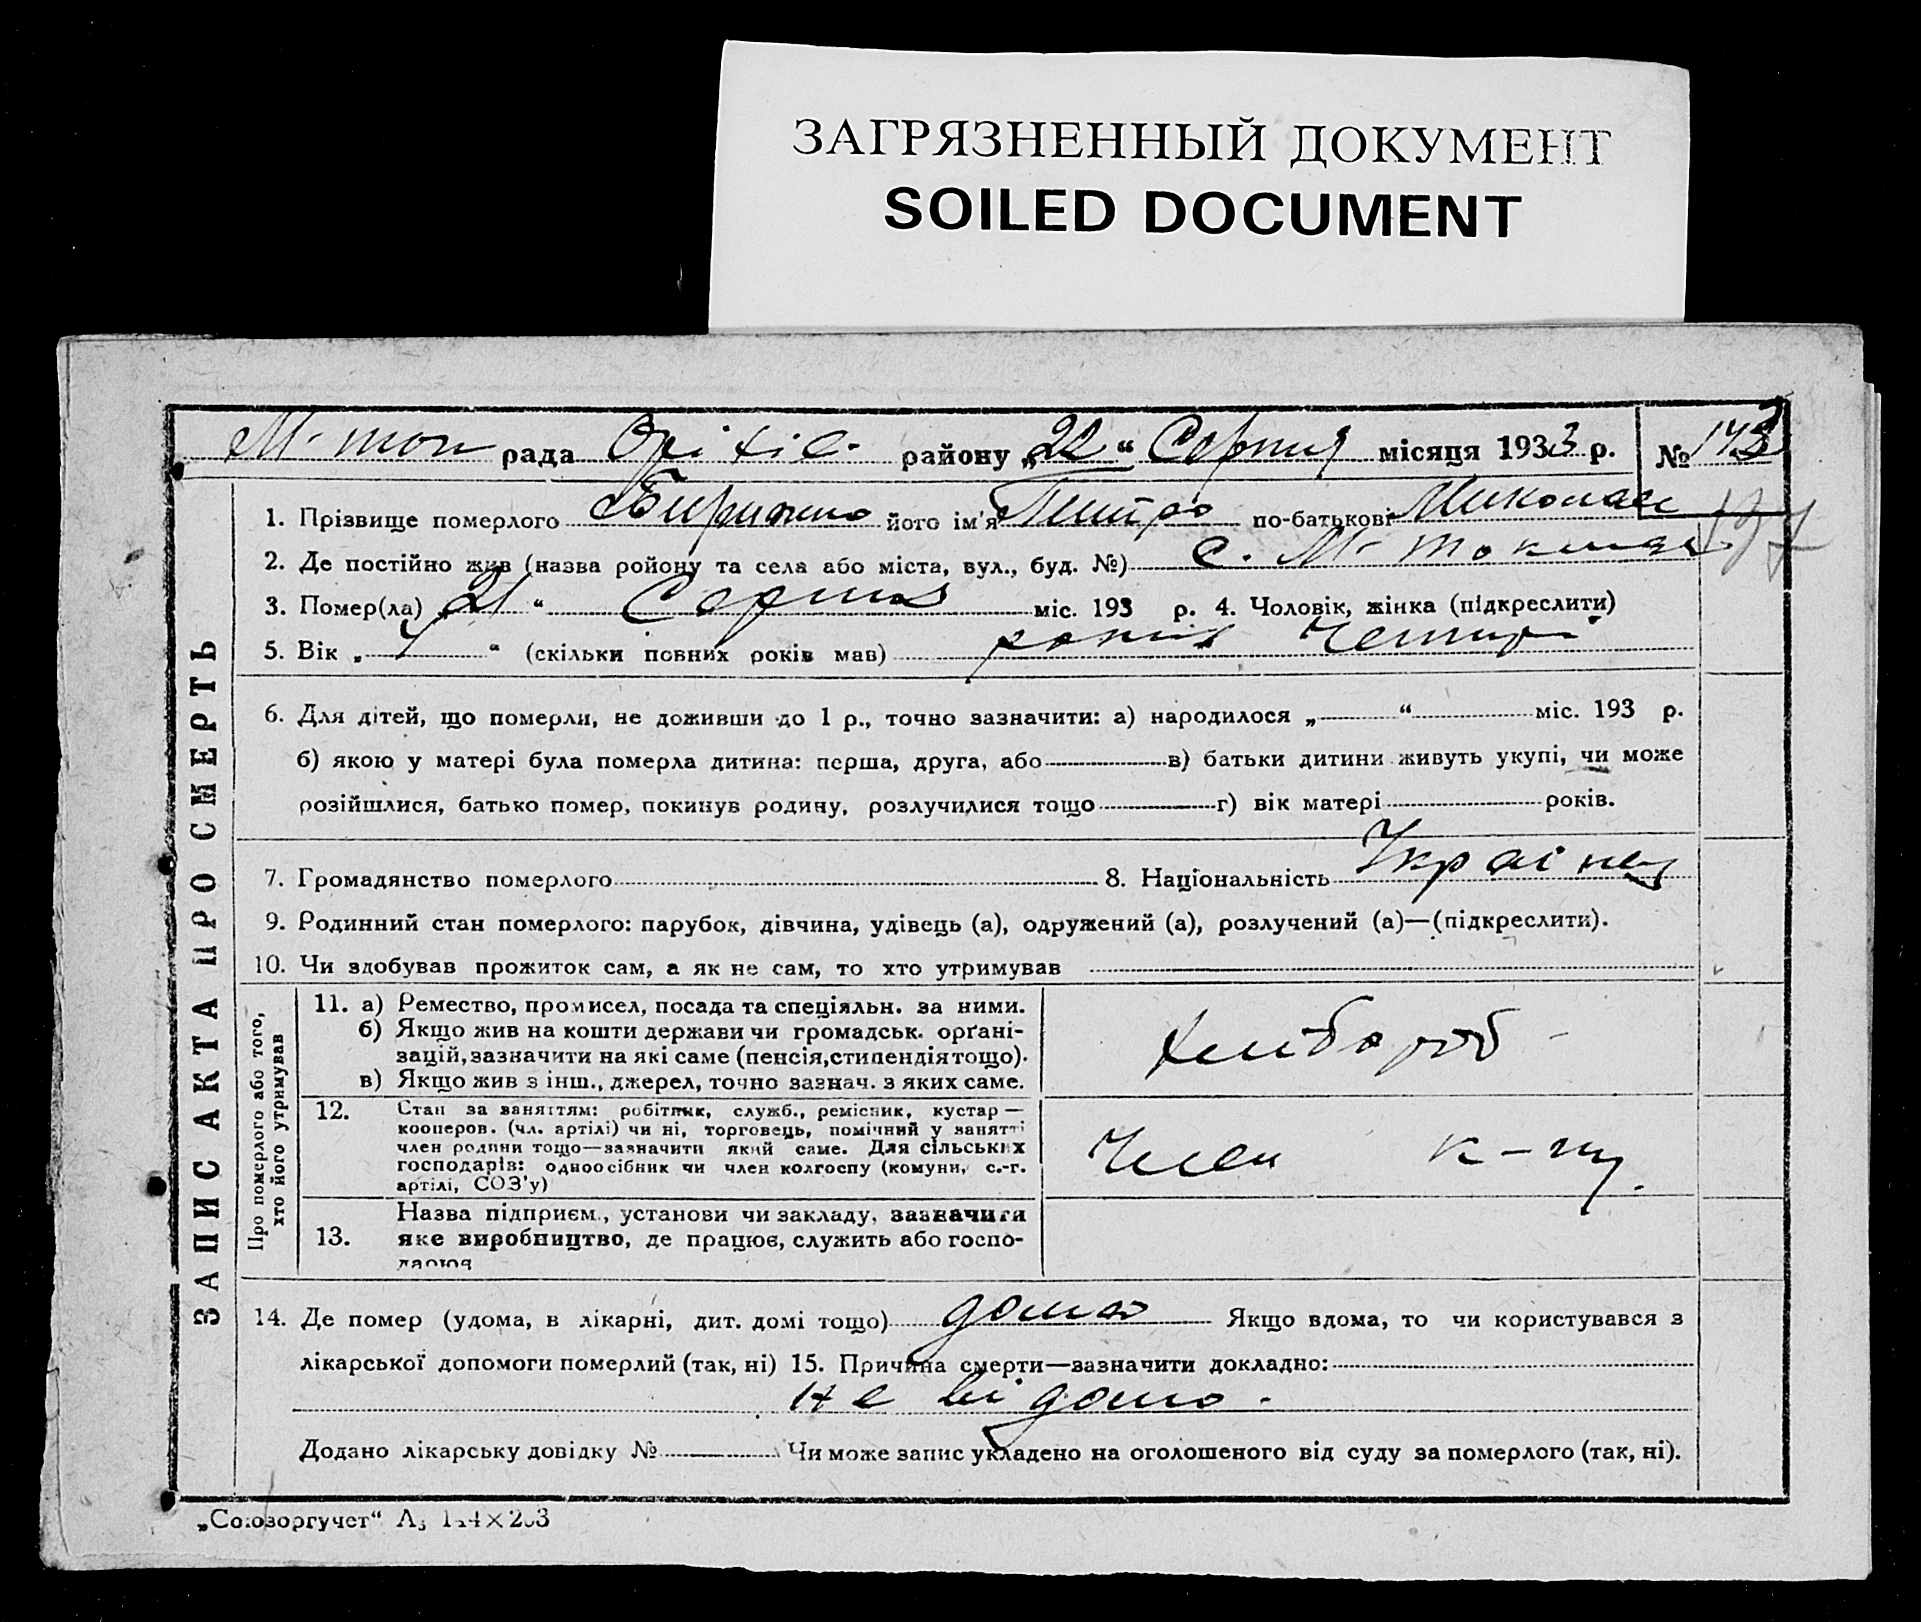 ЗАГРЯЗНЕННЫЙ ДОКУМЕНТ
SOILED DOCUMENT
М-ток рада Оріхів. району „22“ Серпня місяця 1933 р. № 173
1. Прізвище померлого його ім'я Петро по-батькові Миколаєв
197
2. Де постійно жив (назва ройону та села або міста, вул., буд. №) с. М-
3. Помер(ла) „21“ Серпня міс. 193 р. 4. Чоловік, жінка (підкреслити)
5. Вік „4“ (скільки повних років мав) років Чотири
6. Для дітей, що померли, не доживши до 1 р., точно зазначити: а) народилося „ “ міс. 193 р.
б) якою у матері була померла дитина: перша, друга, або в) батьки дитини живуть укупі, чи може
розійшлися, батько помер, покинув родину, розлучилися тощо г) вік матері років.
7. Громадянство померлого 8. Національність Украінец
9. Родинний стан померлого: парубок, дівчина, удівець (а), одружений (а), розлучений (а)—(підкреслити).
10. Чи здобував прожиток сам, а як не сам, то хто утримував
ЗАПИС АКТА ПРО СМЕРТЬ
Про померлого або того,
хто його утримував
11. а) Ремество, промисел, посада та спеціяльн. за ними.
б) Якщо жив на кошти держави чи громадськ. орґані-
зацій, зазначити на які саме (пенсія, стипендія тощо).
в) Якщо жив з інш., джерел, точно зазнач. з яких саме.
хлибороб
12. Стан за заняттям: робітник, служб., ремісник, кустар —
кооперов. (чл. артілі) чи ні, торговець, помічний у занятті
член родини тощо—зазначити який саме. Для сільських
господарів: одноосібник чи член колгоспу (комуни, с.-г.
артілі, СОЗ'у)
Член к-пу.
Назва підприєм., установи чи закладу, зазначити
13. яке виробництво, де працює, служить або госпо-
дарює
14. Де помер (удома, в лікарні, дит. домі тощо) дома Якщо вдома, то чи користувався з
лікарської допомоги померлий (так, ні) 15. Причина смерти—зазначити докладно:
не відомо.
Додано лікарську довідку № Чи може запис укладено на оголошеного від суду за померлого (так, ні).
„Союзоргучет“